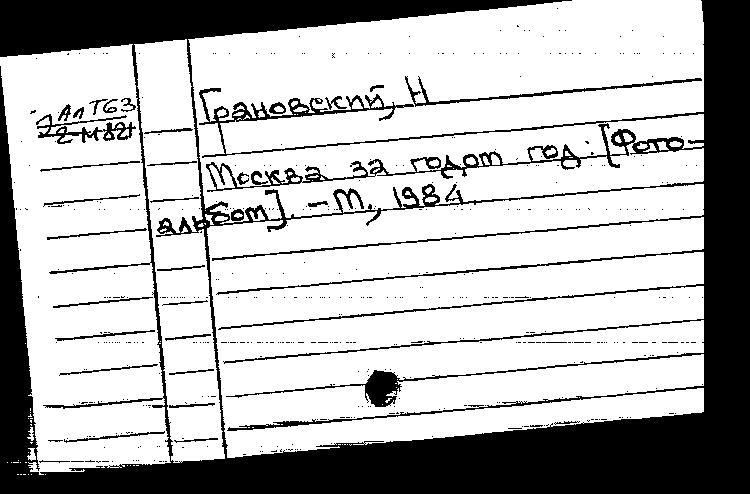 АлТ63
2-М82
Грановский, Н
Москва за годом год: [Фото-
альбом]. – М., 1984.